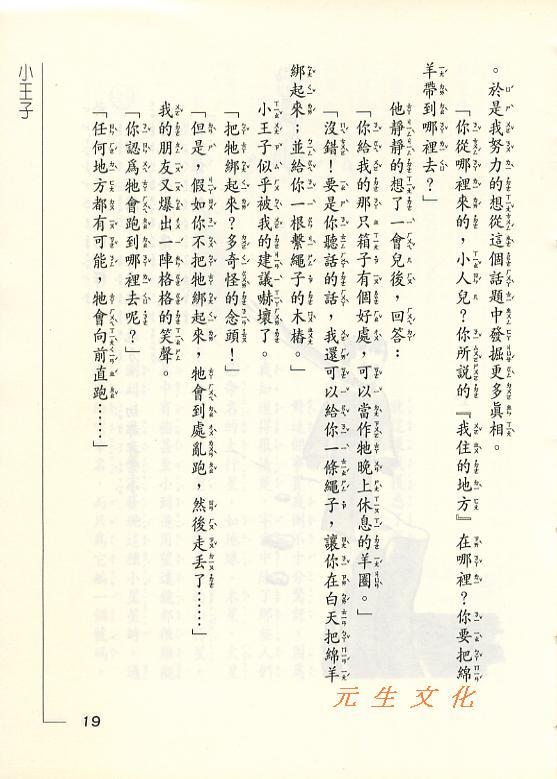 。於是我努力的想從這個話題中發掘更多真相。
「你從哪裡來的，小人兒？你所說的『我住的地方』在哪裡？你要把綿
羊帶到哪裡去？」
他靜靜的想了一會兒後，回答：
「你給我的那只箱子有個好處，可以當作牠晚上休息的羊圈。」
「沒錯！要是你聽話的話，我還可以給你一條繩子，讓你在白天把綿羊
綁起來；並給你一根繫繩子的木樁。」
小王子似乎被我的建議嚇壞了。
「把牠綁起來？多奇怪的念頭！」
「但是，假如你不把牠綁起來，牠會到處亂跑，然後走丟了……」
我的朋友又爆出一陣格格的笑聲。
「你認為牠會跑到哪裡去呢？」
「任何地方都有可能，牠會向前直跑……」
小王子
19
元生文化